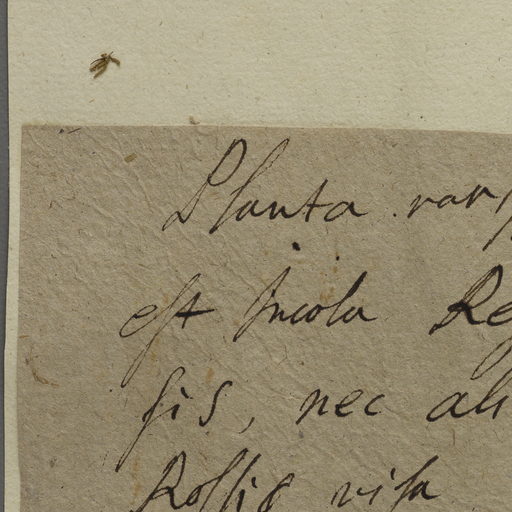 Planta rar
est Incola Re
sis, nec ali
Rossis visa